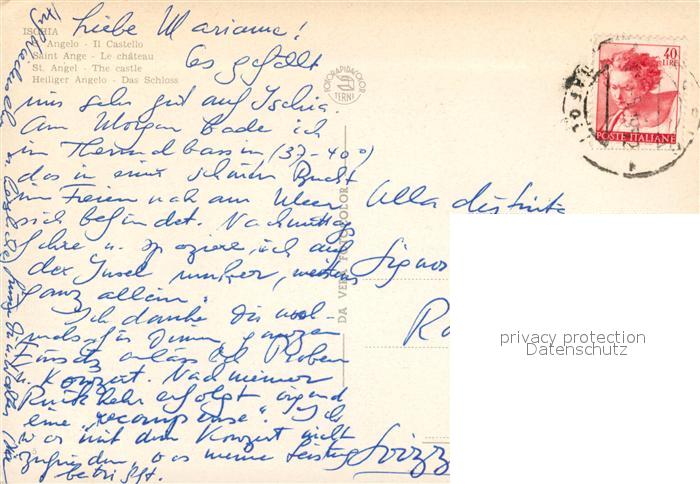 Liebe Mariame!
Es gefällt
uns sehr gut auf Ischia.
Am Morgen bade ich
im Thermalbassin (37-40°)
das in einer schönen Bucht
im Freien nah am Meer
sich befindet. Nachmittag
fahre u. spaziere ich auf
der Insel umher, meistens
ganz allein.
Ich danke Dir noch-
mals für Deinen ganzen
Einsatz anlässlich Proben
u. Konzert. Nach meiner
Rückkehr erfolgt irgend
eine "recompense". Ich
war mit dem Konzert nicht
zufrieden, was meine Leistung
betrifft.
Auf Wiedersehn
ISCHIA
S. Angelo - Il Castello
Saint Ange - Le château
St. Angel - The castle
Heiliger Angelo - Das Schloss
FOTORAPIDACOLOR
TERNI
DA VERA FOTOCOLOR
40
LIRE
POSTE ITALIANE
Alla distinta
Signor
Ra
Svizz
privacy protection
Datenschutz